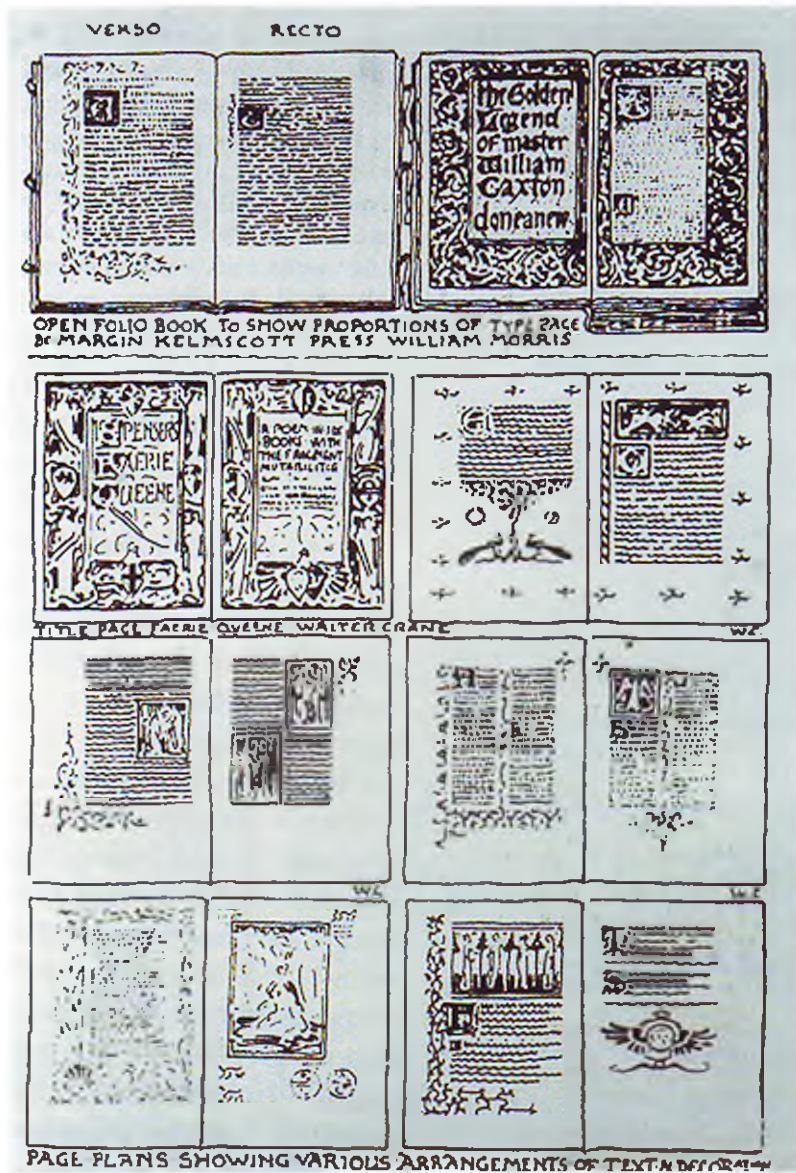 VERSO RECTO
The Golden
Legend
of master
William
Caxton
done anew.
OPEN FOLIO BOOK TO SHOW PROPORTIONS OF TYPE PAGE
& MARGIN KELMSCOTT PRESS WILLIAM MORRIS
SPENSERS
FAERIE
QUEENE
A POEM IN
BOOKS WITH
THE FRAGMENT
MUTABILITIE
TITLE PAGE FAERIE QUEENE WALTER CRANE
W.C.
W.C.
W.C.
PAGE PLANS SHOWING VARIOUS ARRANGEMENTS OF TEXT & DECORATION